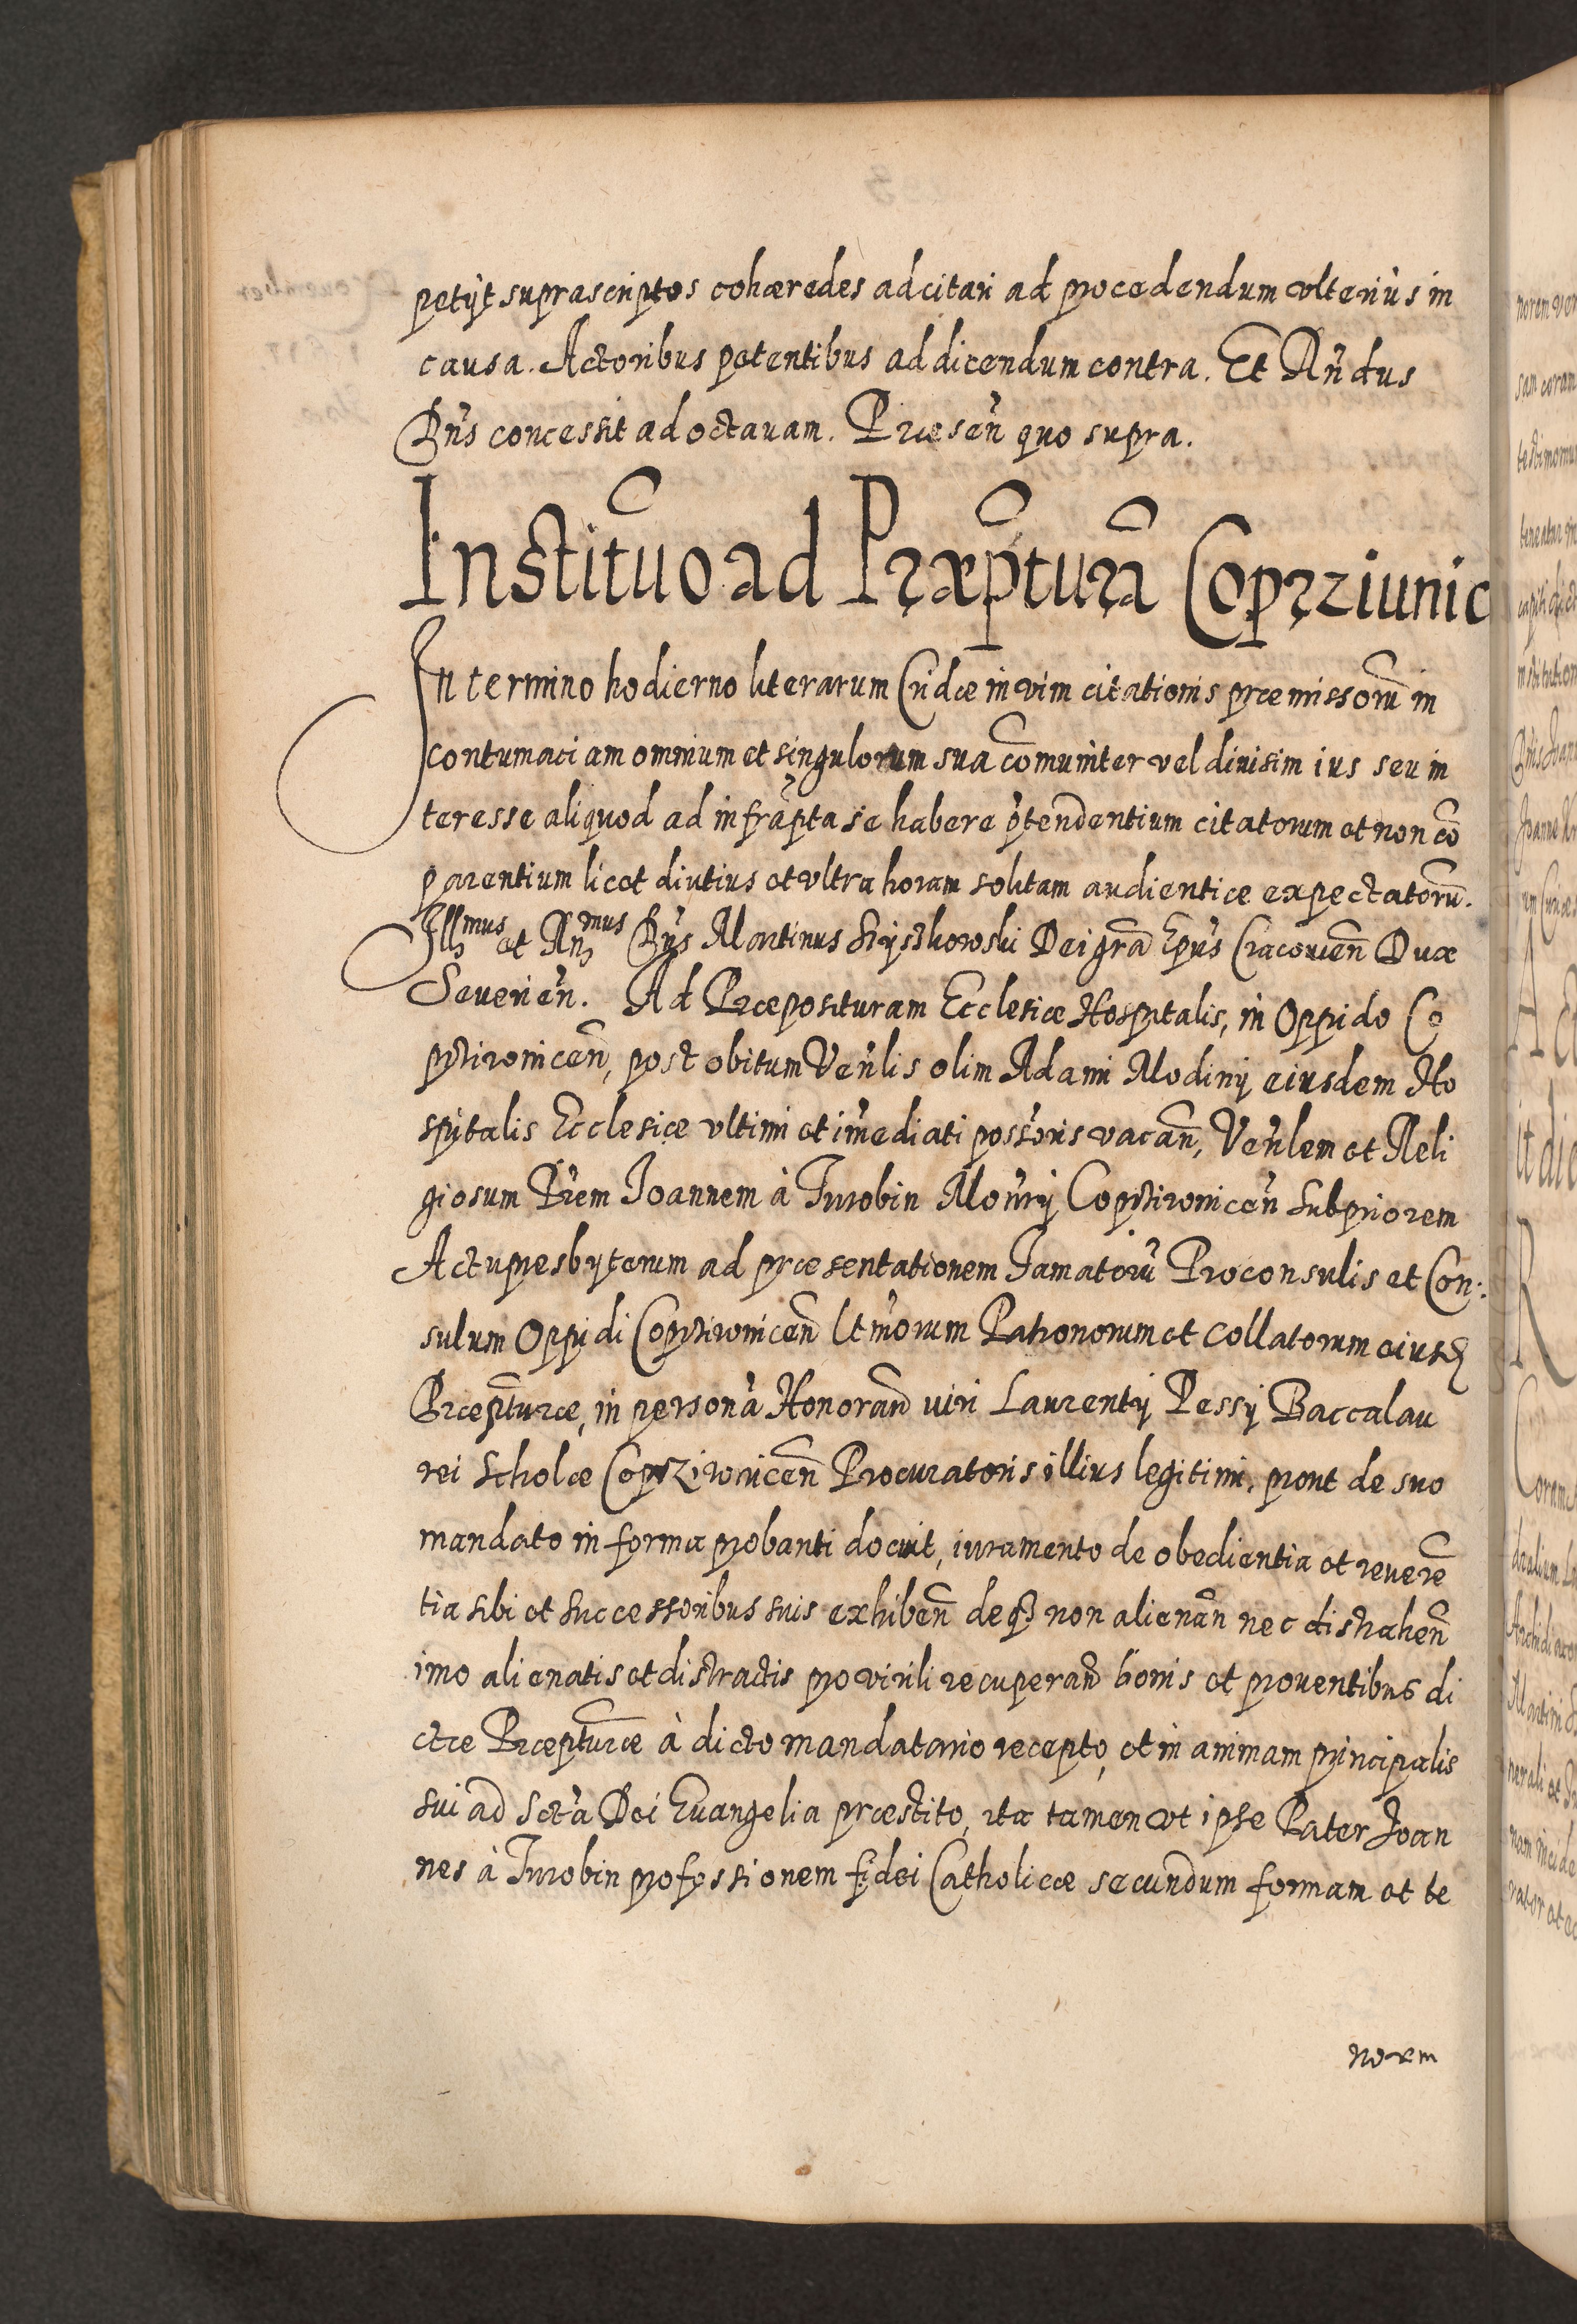 petÿt suprascriptos cohæredes adcitari ad procedendum vlteriùs in
causa. Actoribus petentibus ad dicendum contra. Et Rñdus
Dñs concessit ad octauam. Præseñ quo supra.
Institũo ad Præp̃turã Coprziunic
In termino hodierno literarum Cridæ in vim citationis præmissorũ in
contumaciam omnium et singulorum sua com̃uniter vel diuisim ius seu in
teresse aliquod ad infrãpta se habere p̃tendentium citatorum et non cõ
parentium licet diutius et vltra horam solitam audientiæ expectatorũ.
Illmus et Rnmus Dñs Martinus Szyszkowski Dei grã Epũs Cracouieñ Dux
Seuerieñ. Ad Præposituram Ecclesiæ Hospitalis, in Oppido Co
prziwniceñ, post obitum Veñlis olim Adami Modinÿ eiusdem Ho
spitalis Ecclesiæ vltimi et im̃ediati poss̃oris vacañ, Veñlem et Reli
giosum Pr̃em Joannem à Turobin Moñrij Coprziwniceñ Subpriorem
Actu presbyterum ad præsentationem Famatorũ Proconsulis et Con:
sulum Oppidi Coprziwniceñ Lt̃morum Patronorum et Collatorum eiusd
Præp̃turæ, in persona Honorañ viri Laurentij Pessÿ Baccalau
rei Scholæ Coprziwniceñ Procuratoris illius legitimi, prout de suo
mandato in forma probanti docuit, iuramento de obedientia et reuerẽ
tia sibi et Successoribus suis exhibeñ deq3 non alienañ nec distraheñ
imo alienatis et distractis pro virili recuperañ bonis et prouentibus di
ctæ Præpturæ à dicto mandatario recepto, et in animam principalis
sui ad Sctã Dei Euangelia præstito, ita tamen vt ipse Pater Joan
nes à Turobin professionem fidei Catholicæ secundum formam et te
norem